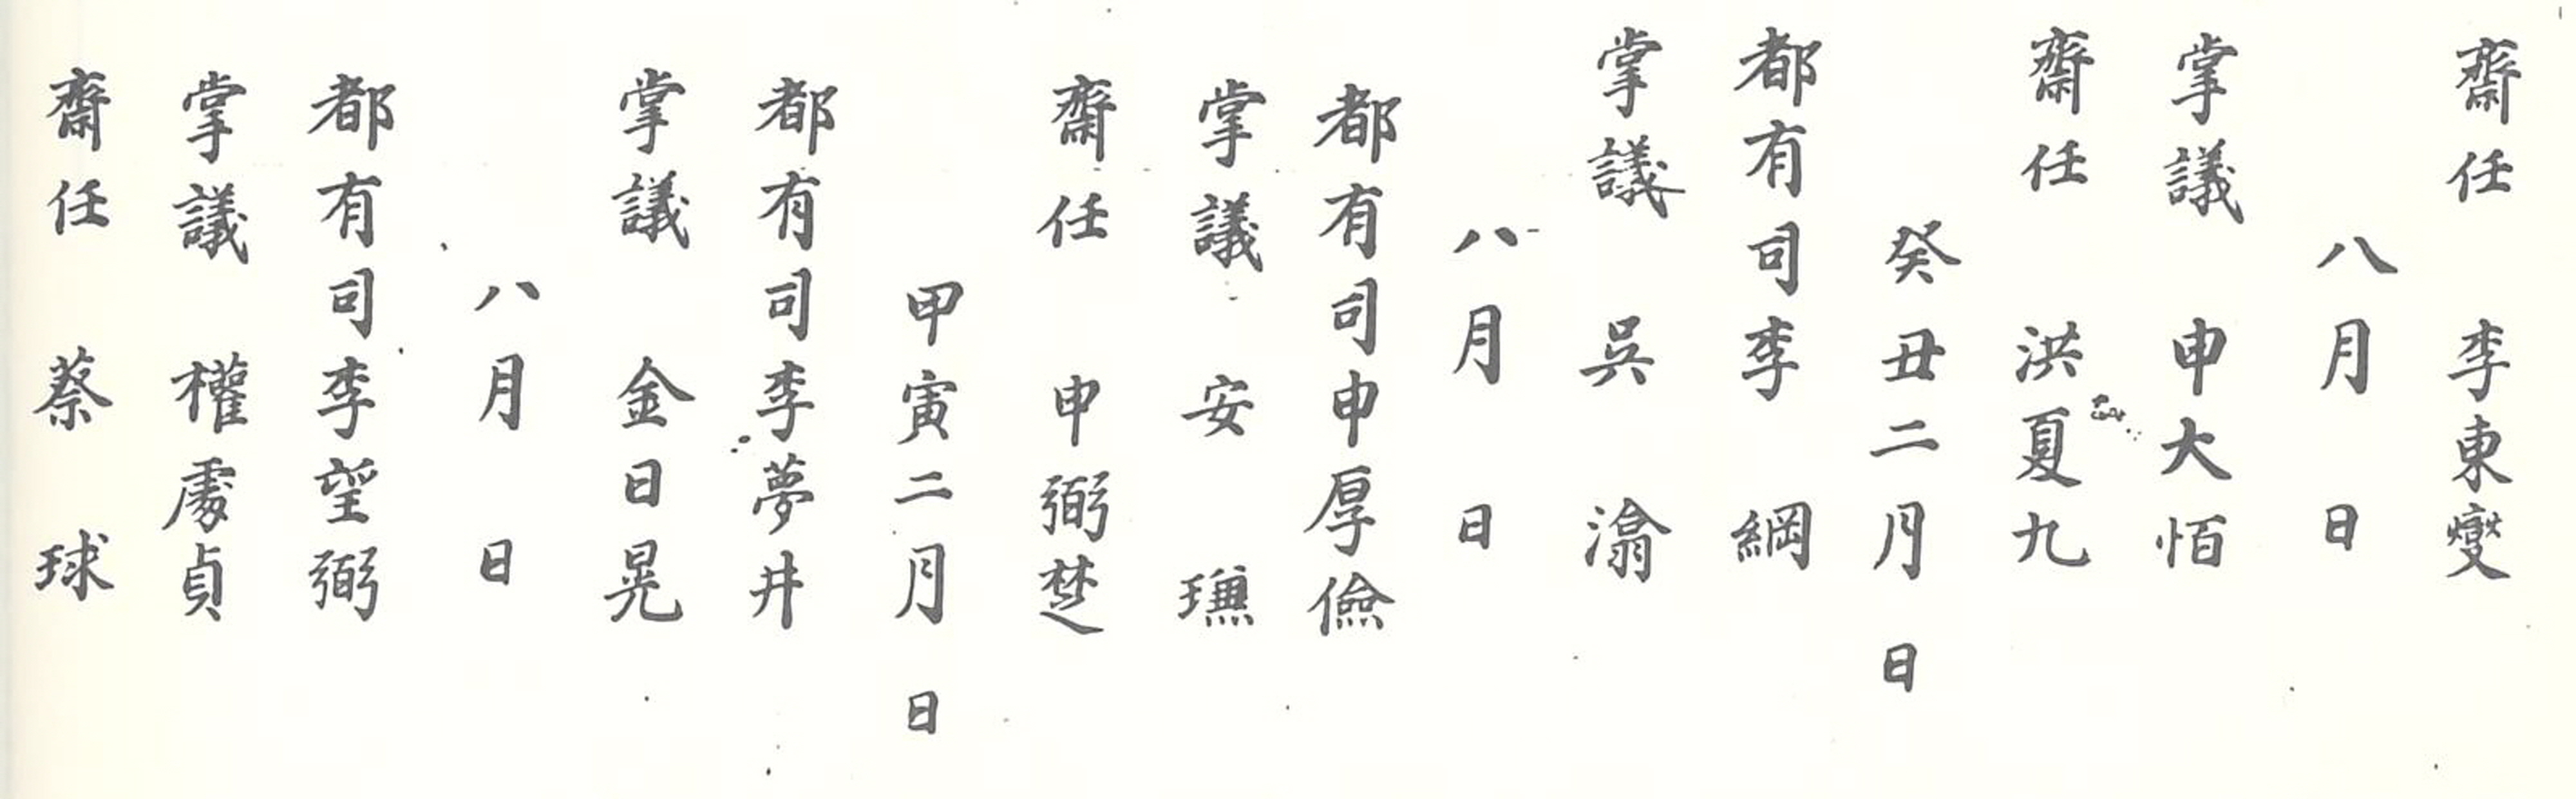 齋任 李東燮
八月 日
掌議 申大佰
齋任 洪夏九
癸丑二月 日
都有司李 綱
掌議 吳 滃
八月 日
都有司申厚儉
掌議 安 璑
齋任 申弼楚
甲寅二月 日
都有司李夢井
掌議 金日晃
八月 日
都有司李望弼
掌議 權處貞
齋任 蔡 球